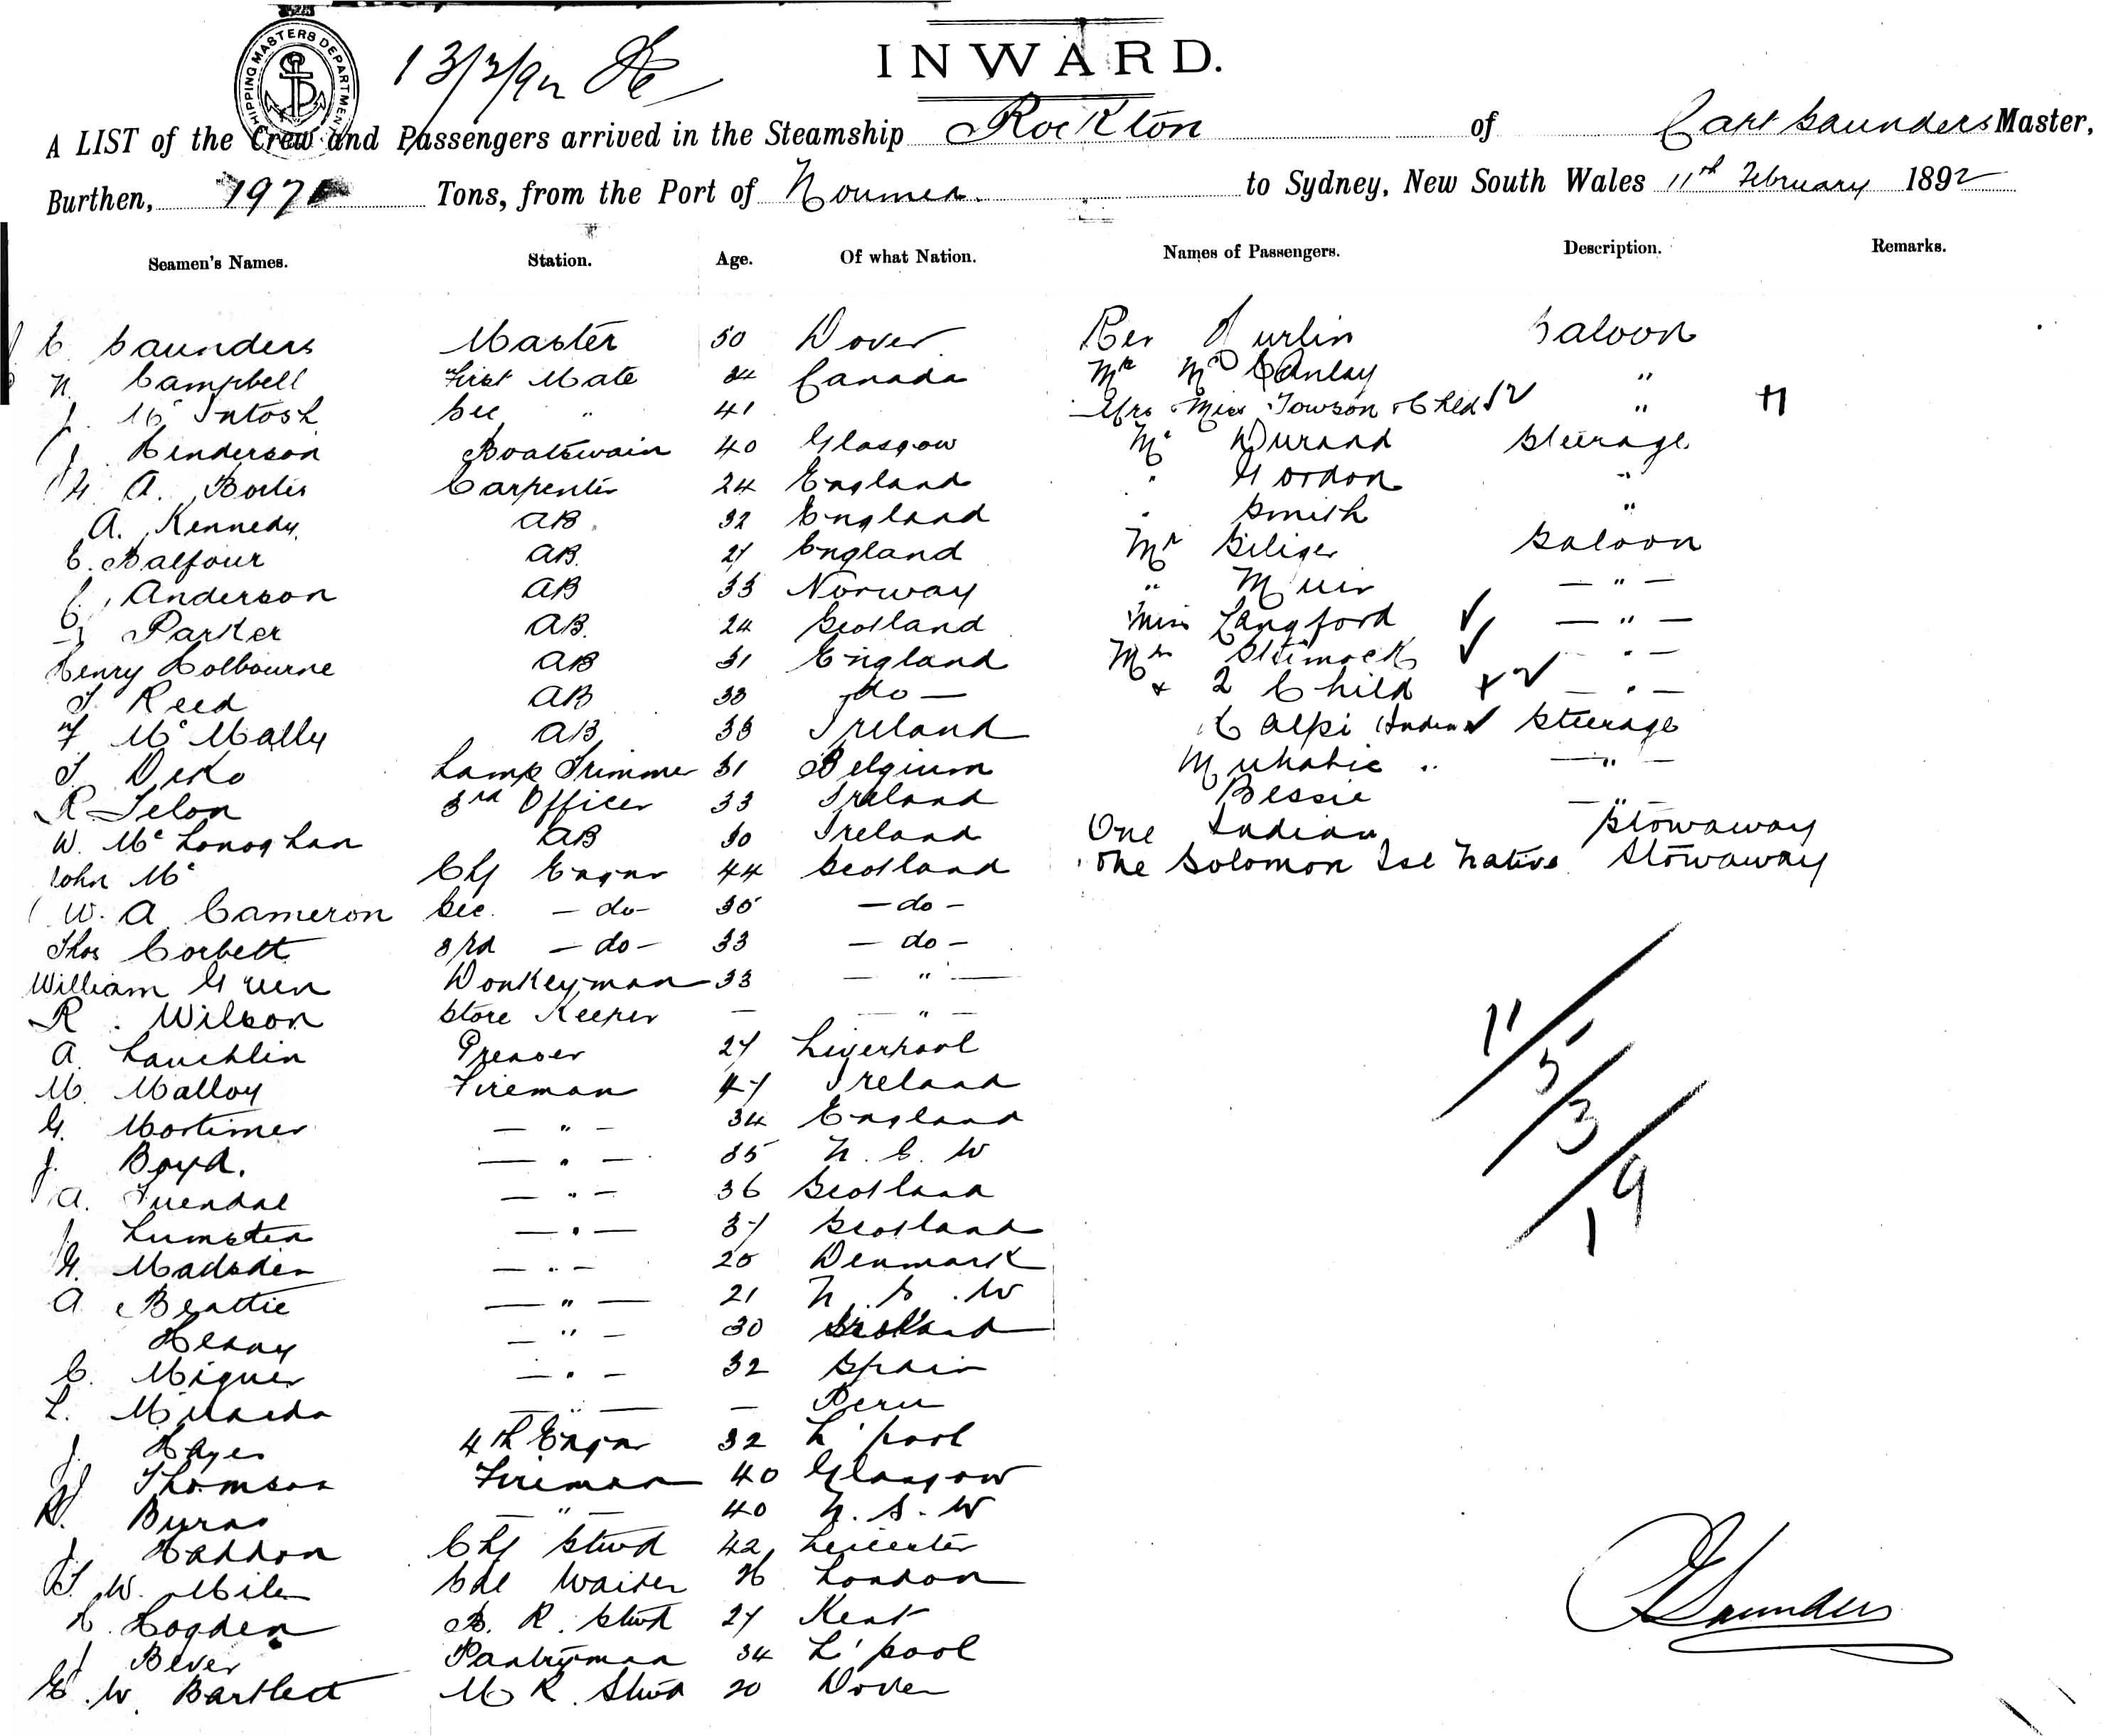 SHIPPING MASTERS DEPARTMENT
13/2/92
INWARD.
A LIST of the Crew and Passengers arrived in the Steamship Rockton of Capt Saunders Master,
Burthen, 1971 Tons, from the Port of Noumea. to Sydney, New South Wales 11th February 1892
Seamen's Names. Station. Age. Of what Nation. Names of Passengers. Description. Remarks.
C. Saunders Master 50 Dover Rev Saloon
N. Campbell First Mate 34 Canada Mr "
J. McIntosh Sec " 41 Mrs Miss Towson & Child "
J. Henderson Boatswain 40 Glasgow Mr Durand Steerage
A. Carpenter 24 England " Gordon "
A. Kennedy AB. 32 England " Smith "
C. Balfour AB. 27 England Mr Seliger Saloon
C. Anderson AB 33 Norway " Muir — " —
Parker AB. 24 Scotland Miss Langford — " —
Henry Colbourne AB 31 England — " —
T. Reed AB 33 — do — & 2 Child — " —
F McNally AB 33 Ireland Steerage
T. Lamp Trimmer 31 Belgium " — " —
R 3rd Officer 33 Ireland Bessie — " —
W. McLonoghan AB 30 Ireland One Indian Stowaway
John Mc Chf Engnr 44 Scotland One Solomon Isl Native Stowaway
W. A Cameron Sec. — do — 35 — do —
Thos Corbett 3rd — do — 33 — do —
William Green Donkeyman 33 — " —
R. Wilson Store Keeper — — " —
A. Lauchlin Greaser 27 Liverpool
M. Malloy Fireman 47 Ireland
G. Mortimer — " — 34 England
J. Boyd. — " — 35 N. S. W
A. — " — 36 Scotland
J. Lumsden — " — 37 Scotland
Madsden — " — 25 Denmark
A Beattie — " — 21 N. S. W
Henry — " — 30
C. — " — 32 Spain
L. — " — — Peru
J. Hayes 4th Engnr 32 L'pool
J Thomson Fireman 40 Glasgow
Burns — " — 40 N. S. W
J. Haddon Chf Stwd 42 Leicester
T. W. Miles Sal Waiter 26 London
H. Hogden B. R. Stwd 27 Kent
J Bever Pantryman 34 L'pool
W. Bartlett M R. Stwd 20 Dover
11/5/3/19
Saunders